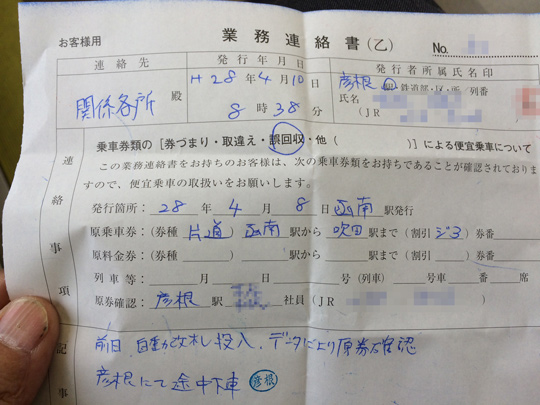 お客様用 業務連絡書(乙) No.
連絡先 発行年月日 発行者所属氏名印
関係各所 殿 H28年4月10日 彦根 駅 鉄道部・区・所/列番
8時38分 氏名
(JR
乗車券類の [券づまり・取違え・誤回収・他 ( )]による便宜乗車について
この業務連絡書をお持ちのお客様は、次の乗車券類をお持ちであることが確認されておりま
すので、便宜乗車の取扱いをお願いします。
連絡事項
発行箇所: 28年4月8日 函南駅発行
原乗車券:(券種 片道) 函南駅から 吹田駅まで(割引 ジ3)券番
原料金券:(券種 ) 駅から 駅まで(割引 )券番
列車等: 月 日 号(列車) 号車 番 席
原券確認: 彦根駅 社員(JR )
記事
前日、自動改札投入、データにより原券確認
彦根にて途中下車 彦根